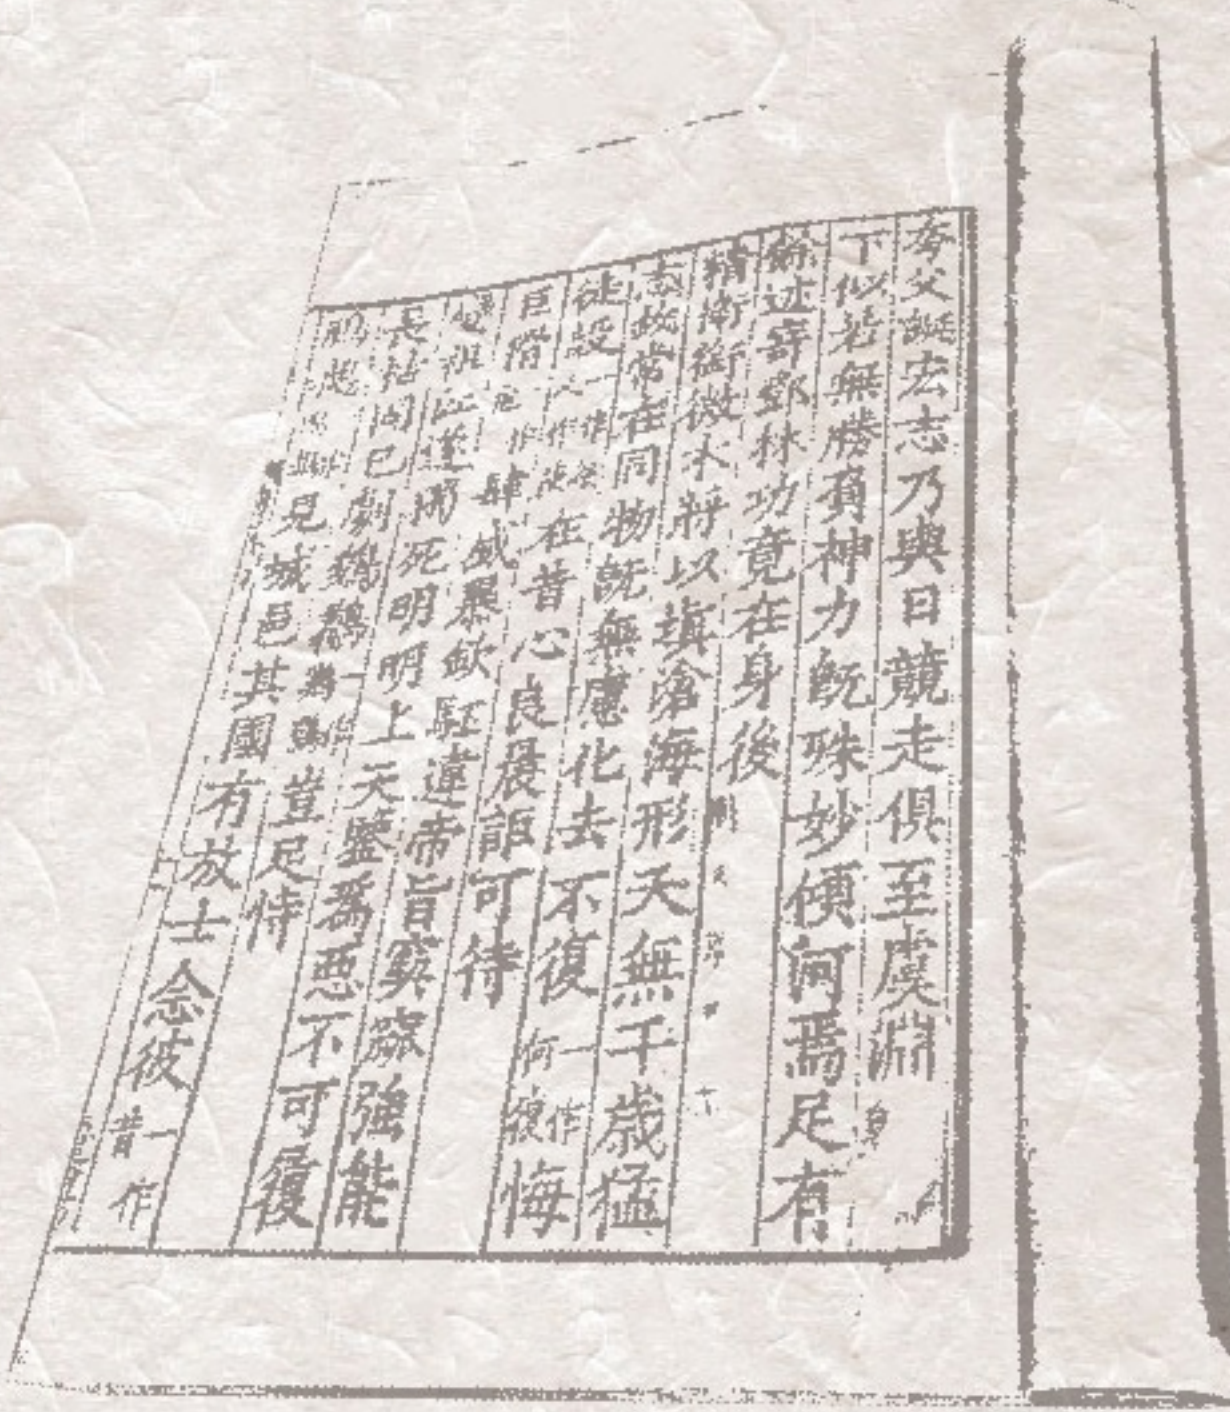 夸父誕宏志乃與日競走俱至虞淵
下似若無勝負神力既殊妙傾河焉足有
餘迹寄鄧林功竟在身後
精衛銜微木將以填滄海形天無千歲猛
志故常在同物既無慮化去不復一作何復悔
徒設在昔心良晨詎可待
巨猾肆威暴欽駓違帝旨窫窳強能
變祖江遂獨死明明上天鑒為惡不可履
長枯固已劇鵕鶚豈足恃
見城邑其國有放士念彼一作昔